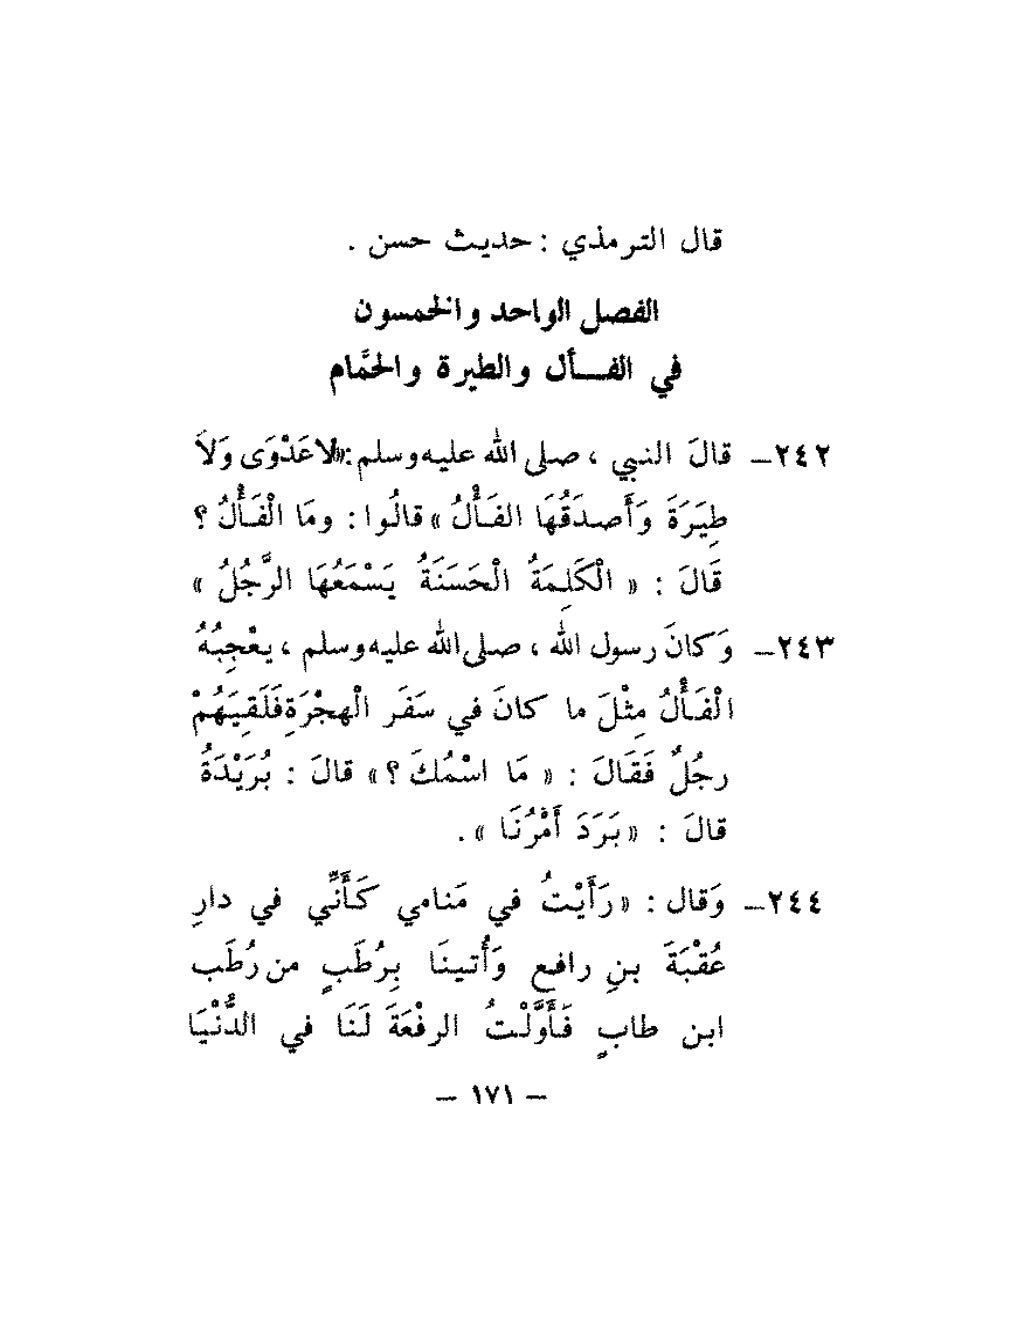 قال الترمذي : حديث حسن .
الفصل الواحد والخمسون
في الفـــأل والطيرة والحمَّام
٢٤٢ـ قالَ النبي ، صلى الله عليه وسلم :«لا عَدْوَى وَلَا
طِيَرَةَ وَأَصدَقُهَا الفَـأْلُ » قالُوا : ومَا الْفَـأْلُ ؟
قَالَ : « الْكَلِمَةُ الْحَسَنَةُ يَسْمَعُهَا الرَّجُلُ »
٢٤٣ـ وَكانَ رسول الله ، صلى الله عليه وسلم ، يعْجِبُهُ
الْفَـأْلُ مِثْلَ ما كانَ في سَفَر الْهجْرَةِ فَلَقِيَهُمْ
رجُلٌ فَقَالَ : « مَا اسْمُكَ ؟ » قالَ : بُرَيْدَةُ
قالَ : « بَرَدَ أَمْرُنَا » .
٢٤٤ـ وَقال : « رَأَيْتُ في مَنامي كَأَنَّي في دارِ
عُقْبَةَ بنِ رافعٍ وَأُتينَا بِرُطَبٍ من رُطَب
ابن طابٍ فَأَوَّلْتُ الرفْعَةَ لَنَا في الدُّنْيَا
— ١٧١ —